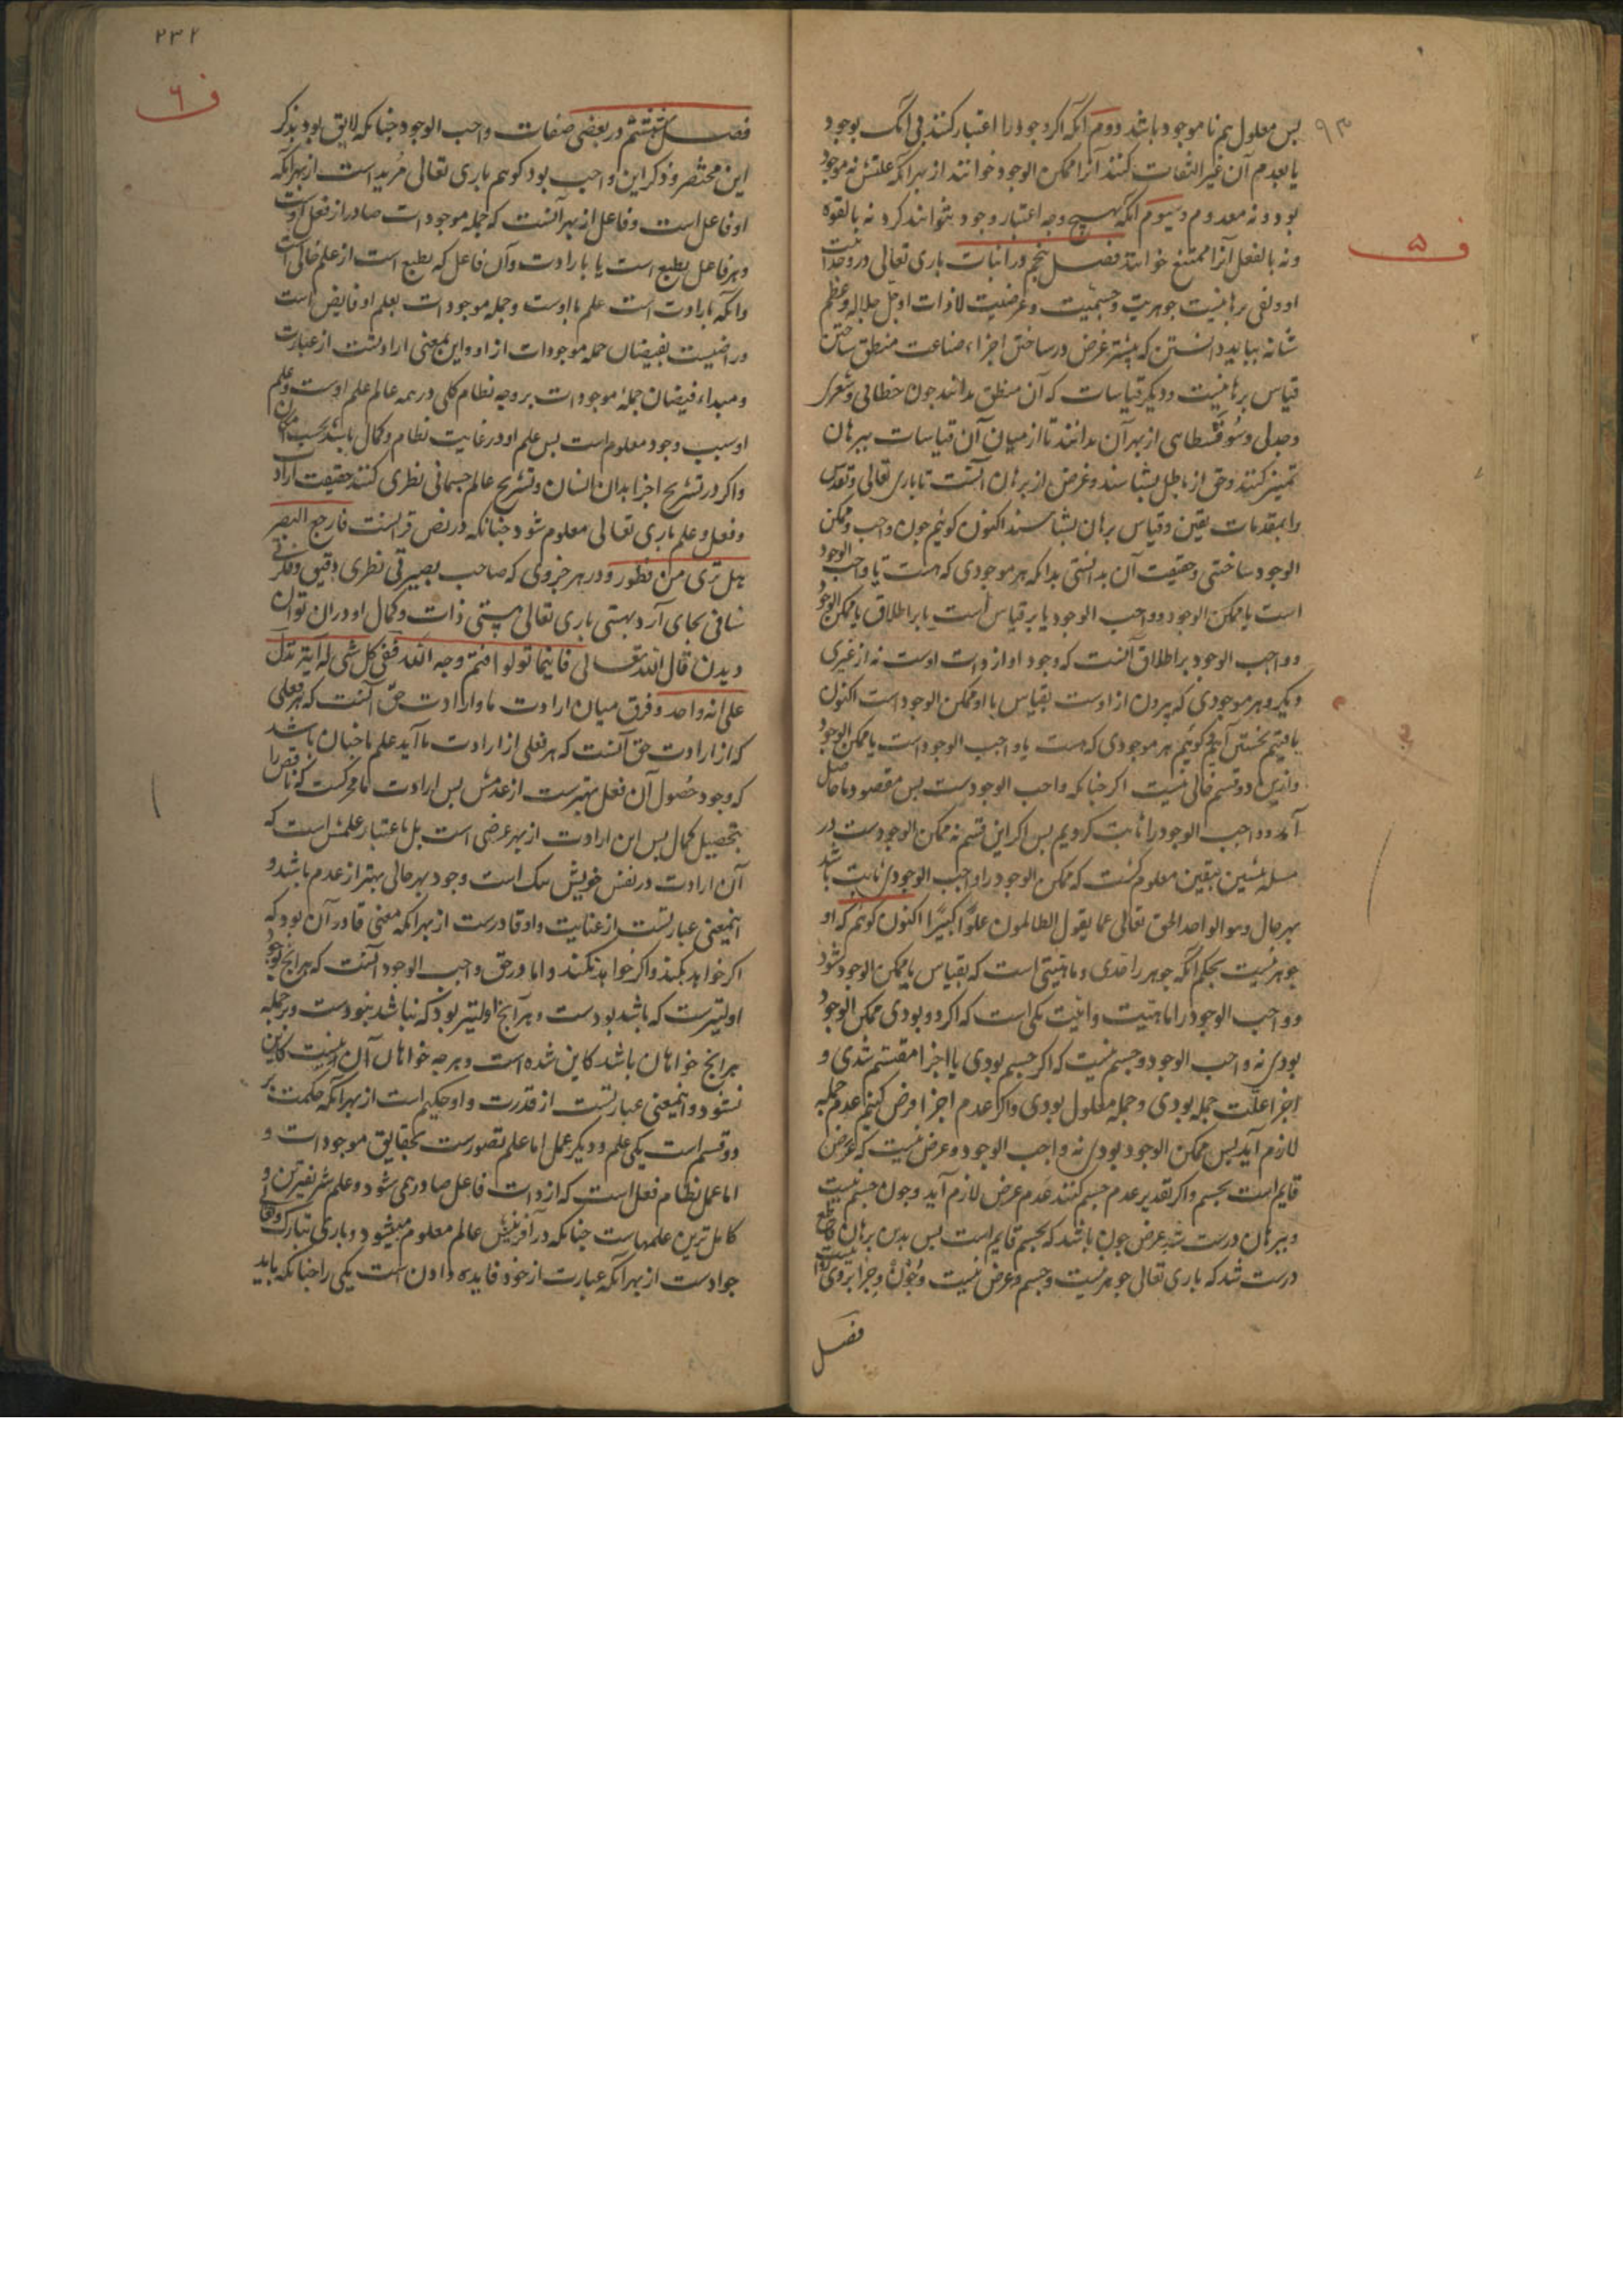 ۹۳
ف ۵
پس معلول هم نا موجود باشد دوم آنکه اکر وجود را اعتبار کنند بی آنک بوجود
یا بعدم آن غیر التفات کنند آنرا ممکن الوجود خوانند از بهر آنکه علتش نه موجود
بود و نه معدوم و سیوم آنکه بهیچ وجه اعتبار وجود بنتوانند کرد نه بالقوه
و نه بالفعل آنرا ممتنع خوانند فصل پنجم در اثبات باری تعالی و در وحدانیت
او و نفی برهانیت جوهریت و جسمیت و عرضیت لاذات او جل جلاله و عظم
شانه بباید دانستن که بیشتر غرض در ساختن اجزاء صناعت منطق ساختن
قیاس برهانیست و دیکر قیاسات که آن منطق بدانند چون خطابی و شعری
و جدلی و سوفسطایی از بهر آن بدانند تا از میان آن قیاسات ببرهان
تمیز کنند و حق از باطل بشناسند و غرض از برهان آنست تا باری تعالی و تقدس
را بمقدمات یقین و قیاس برهان بشناسند اکنون کوئیم چون واجب و ممکن
الوجود ساختی و حقیقت آن بدانستی بدانکه هر موجودی که هست یا واجب الوجود
است یا ممکن الوجود و واجب الوجود یا بر قیاس است یا بر اطلاق یا ممکن الوجود
و واجب الوجود بر اطلاق آنست که وجود او از ذات اوست نه از غیری
دیکر و هر موجودی که بیرون از اوست بقیاس با او ممکن الوجود است اکنون
یافتیم نخستین کوئیم هر موجودی که هست یا واجب الوجود است یا ممکن الوجود
و ازین دو قسم خالی نیست اکر چنانکه واجب الوجودست پس مقصود ما حاصل
آمد و واجب الوجود را ثابت کردیم پس اکر این قسم نه ممکن الوجودست در
مسله پیشین بیقین معلوم کشت که ممکن الوجود را واجب الوجودی ثابت باشد
بهر حال و هو الواحد الحق تعالی عما یقول الظالمون علوًا کبیرًا اکنون کوئیم که او
جوهر نیست بحکم آنکه جوهر را حدی و ماهیتی است که بقیاس با ممکن الوجود شود
و واجب الوجود را ماهیت و انیت یکی است که اکر دو بودی ممکن الوجود
بودی نه واجب الوجود و جسم نیست که اکر جسم بودی با اجزا منقسم شدی و
اجزا علت جمله بودی و جمله معلول بودی و اکر عدم اجزا فرض کنیم عدم جمله
لازم آید پس ممکن الوجود بودی نه واجب الوجود و عرض نیست که عرض
قایم است بجسم و اکر تقدیر عدم جسم کنند عدم عرض لازم آید و چون جسم نیست
و ببرهان درست شد عرض چون باشد که بجسم قایم است پس بدین برهان قاطع
درست شد که باری تعالی جوهر نیست و جسم و عرض نیست و چون و چرا بر وی روا نیست
فصل
۲۳۲
ف ۶
فصل ششم در بعضی صفات واجب الوجود چنانکه لایق بود بذکر
این مختصر و ذکر این واجب بود کوئیم باری تعالی مرید است از بهر آنکه
او فاعل است و فاعل از بهر آنست که جمله موجودات صادر از فعل اوست
و هر فاعل بطبع است یا بارادت و آن فاعل که بطبع است از علم خالی است
و آنکه بارادت است علم با اوست و جمله موجودات بعلم او فایض است
و راضیست بفیضان جمله موجودات از او و این بمعنی ارادتست از عبارت
و مبداء فیضان جمله موجودات بر وجه نظام کلی در همه عالم علم اوست و علم
او سبب وجود معلوم است پس علم او در غایت نظام و کمال باشد بحسب امکان
و اکر در تشریح اجزا بدان انسان و تشریح عالم جسمانی نظری کنند حقیقت ارادت
و فعل و علم باری تعالی معلوم شود چنانکه در نص قرآنست فارجع البصر
هل تری من فطور و در هر جزوی که صاحب بصیرتی نظری دقیق و فکری
شافی بجای آرد بهستی باری تعالی هستی ذات و کمال او دران توان
دیدن قال الله تعالی فاینما تولوا فثم وجه الله ففی کل شی له آیة تدل
علی انه واحد و فرق میان ارادت ما و ارادت حق آنست که هر فعلی
که از ارادت حق آنست که هر فعلی از ارادت ما آید علم ما چنان باشد
که وجود حصول آن فعل بهترست از عدمش پس ارادت ما محرکست که ناقص را
بتحصیل کمال پس این ارادت از بهر غرضی است بل باعتبار علمش است که
آن ارادت در نفس خویش نیک است و وجود بهر حالی بهتر از عدم باشد و
اینمعنی عبارتست از عنایت و او قادرست از بهر آنکه معنی قادر آن بود که
اکر خواهد بکند و اکر خواهد نکند و اما در حق واجب الوجود آنست که هر آنچ بود
اولیترست که باشد بودست و هر آنچ اولیتر بود که نباشد نبودست و بر جمله
هر آنچ خواهان باشد کاین شده است و هر چه خواهان آن نیست کاین
نشود و اینمعنی عبارتست از قدرت و او حکیم است از بهر آنکه حکمت بر
دو قسم است یکی علم و دیکر عمل اما علم تصورست بحقایق موجودات و
اما عمل نظام فعل است که از ذات فاعل صادر می شود و علم شریفترین و
کاملترین علمهاست چنانکه در آفرینش عالم معلوم میشود و باری تبارک و تعالی
جوادست از بهر آنکه عبارت از خود فایده دادن است یکی را چنانکه باید